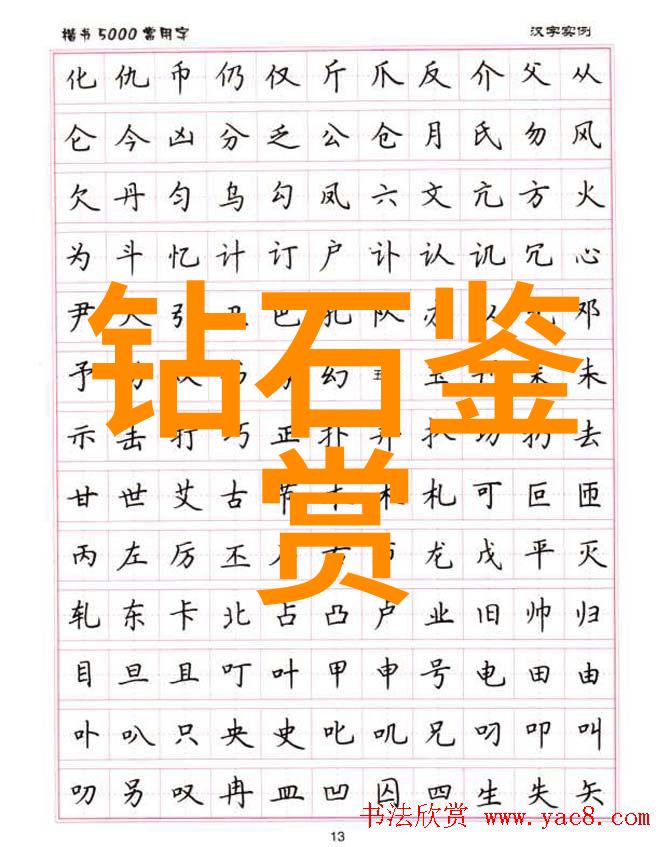 楷书5000常用字 汉字实例
化 仇 币 仍 仅 斤 爪 反 介 父 从
仑 今 凶 分 乏 公 仓 月 氏 勿 风
欠 丹 匀 乌 勾 凤 六 文 亢 方 火
为 斗 忆 计 订 户 讣 认 讥 冗 心
尹 引 巴 孔 队 邓
予 幻 未
示 击 打 巧 正 扑 扒 功 扔 去
甘 世 艾 古 节 札 可 叵 匝
丙 左 厉 丕 龙 戊 平 灭
轧 东 卡 北 占 凸 卢 业 旧 帅 归
目 旦 且 叮 叶 甲 申 号 电 田 由
卟 叭 只 央 史 叱 叽 兄 叼 叩 叫
叨 另 叹 冉 皿 凹 囚 四 生 失 矢
钻石鉴
赏
书法欣赏 www.yac8.com
13